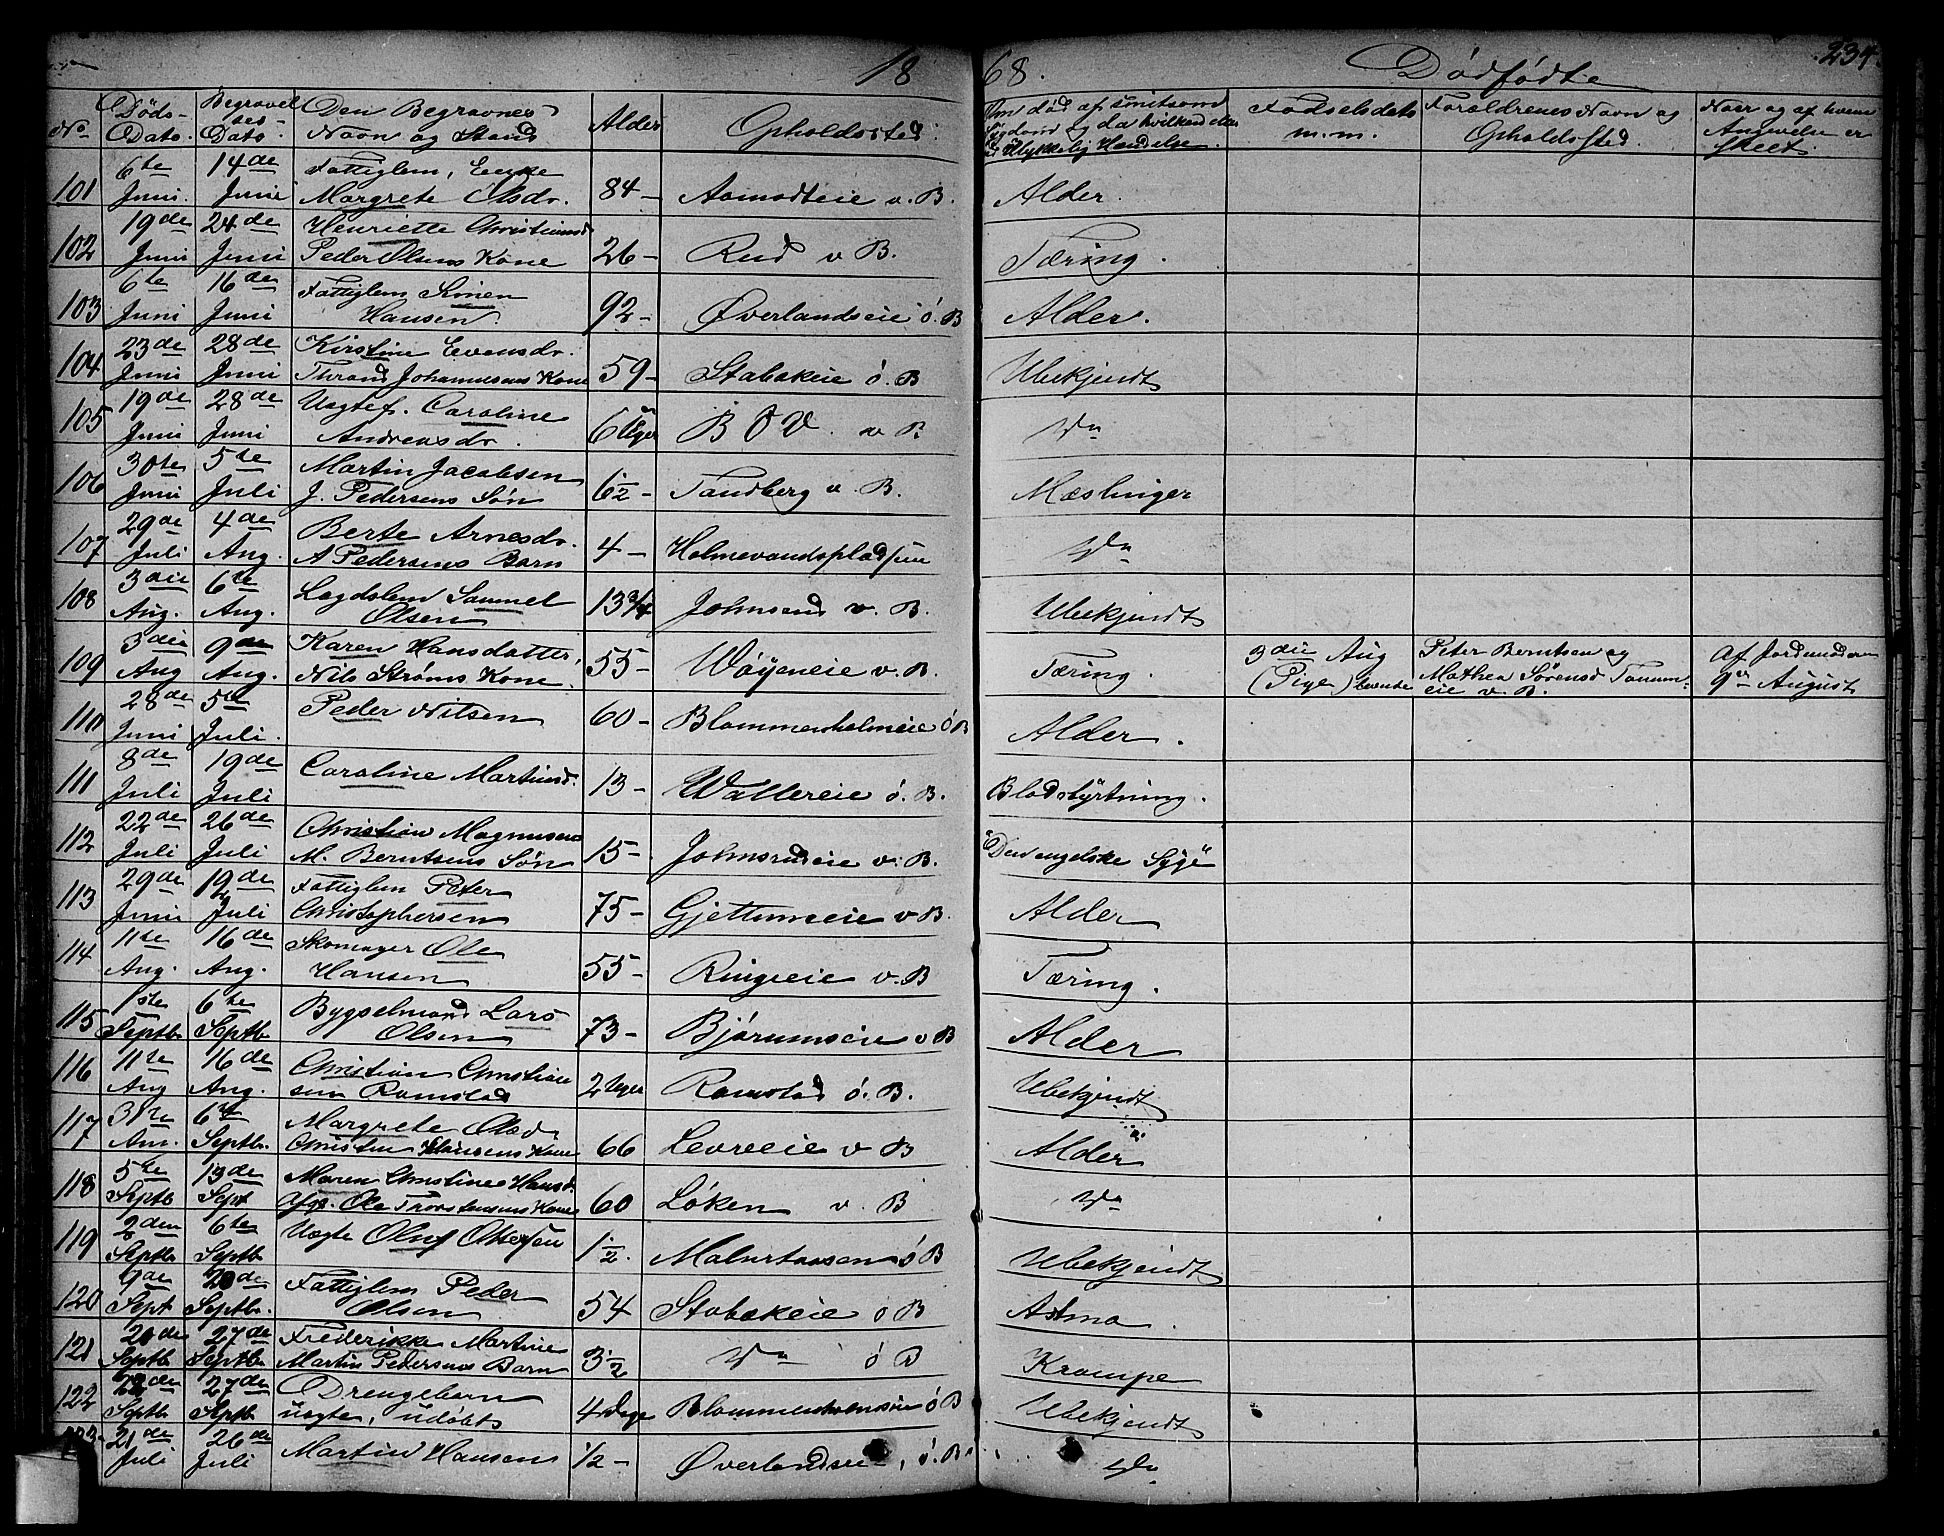 1868. Dödfödte 234
No Döds-Dato. Begravelses-Dato. Den Begravnes Navn og Stand Alder Opholdssted. Om död af smitsom Sygdom og da hvilken eller ved Ulykkelig Hændelse. Fødselsdato m.m. Forældrenes Navn og Opholdssted. Naar og af hvem Angivelse er skeet.
101 6te Juni. 14de Juni Fattiglem, Enke Margrete Olsdr. 84- Aamodteie v. B. Alder.
102 19de Juni 24de Juni Henriette Christiansd Peder Olsens Kone 26- Rud v B. Tæring.
103 6te Juni 16de Juni Fattiglem Simen Hansen. 92- Øverlandseie ö. B Alder.
104 23de Juni 28de Juni Kirstine Evensdr. Thrond Johannesens Kone 59- Stabækeie ö. B Ubekjendt
105 19de Juni 28de Juni Uegtef. Caroline Andreasdr. 6 Uger B Ö V. v B Do
106 30te Juni 5te Juli Martin Jacobsen J. Pedersens Sön 6½- Tandberg v. B. Mæslinger
107 29de Juli 4de Aug. Berte Arnesdr. A Pedersens Barn 4- Holmevandspladsen Do
108 3die Aug. 6te Aug. Lægdslem Samuel Olsen 13¾ Johnsrud v. B. Ubekjendt
109 3die Aug 9de Aug. Karen Hansdatter, Nils Ströms Kone. 55- Wöyeneie v. B. Tæring. 3die Aug (Pige) levende Peter Berntsen og Mathea Sörensd Tanumeie v. B. Af Jordmoderen 9de August
110 28de Juni 5te Juli. Peder Nilsen 60- Blommenholmeie ö B Alder.
111 8de Juli 19de Juli Caroline Martinsd. 13- Wallereie ö. B. Blodstyrtning.
112 22de Juli 26de Juli Christian Magnusen M. Berntsens Sön 15-. Johnsrudeie v. B. "Den engelske Syge"
113 29de Juni 19de Juli Fattiglem Peter Christophersen 75- Gjettumeie v B. Alder
114 11te Aug. 16de Aug. Skomager Ole Hansen 55- Ringieie v. B Tæring.
115 1ste Septb 6te Septb Bygselmand Lars Olsen 73- Bjørumseie v B Alder
116 11te Aug 16de Aug. Christian Christiansen Ramstad 2 Uger Ramstad ö. B. Ubekjendt
117 31te 6te Septb. Margrete Olsd. Christen Hansens Kone 66 Levreeie v B Alder
118 5te Septb 13de Sept Maren Christine Hansd. Ole Trorstensens Kone 60 Löken v. B Do
119 2den Septb 6te Septb Uegte Oluf Ottersen 1½. ö B Ubekjendt
120 9de Sept 20de Septb. Fattiglem Peder Olsen 54 Stabækeie ö B Astma.
121 20de Septb 27de Septb Frederikke Martine Martin Pedersens Barn 3½ Do ö B Krampe
122 Septb 27de Septb Drengebarn uegte, udöbt 4 Dage Blommenholmeie ö B Ubekjendt
123 21de Juli 26de Juli Martin Hansen ½- Øverlandseie, ö. B. Do